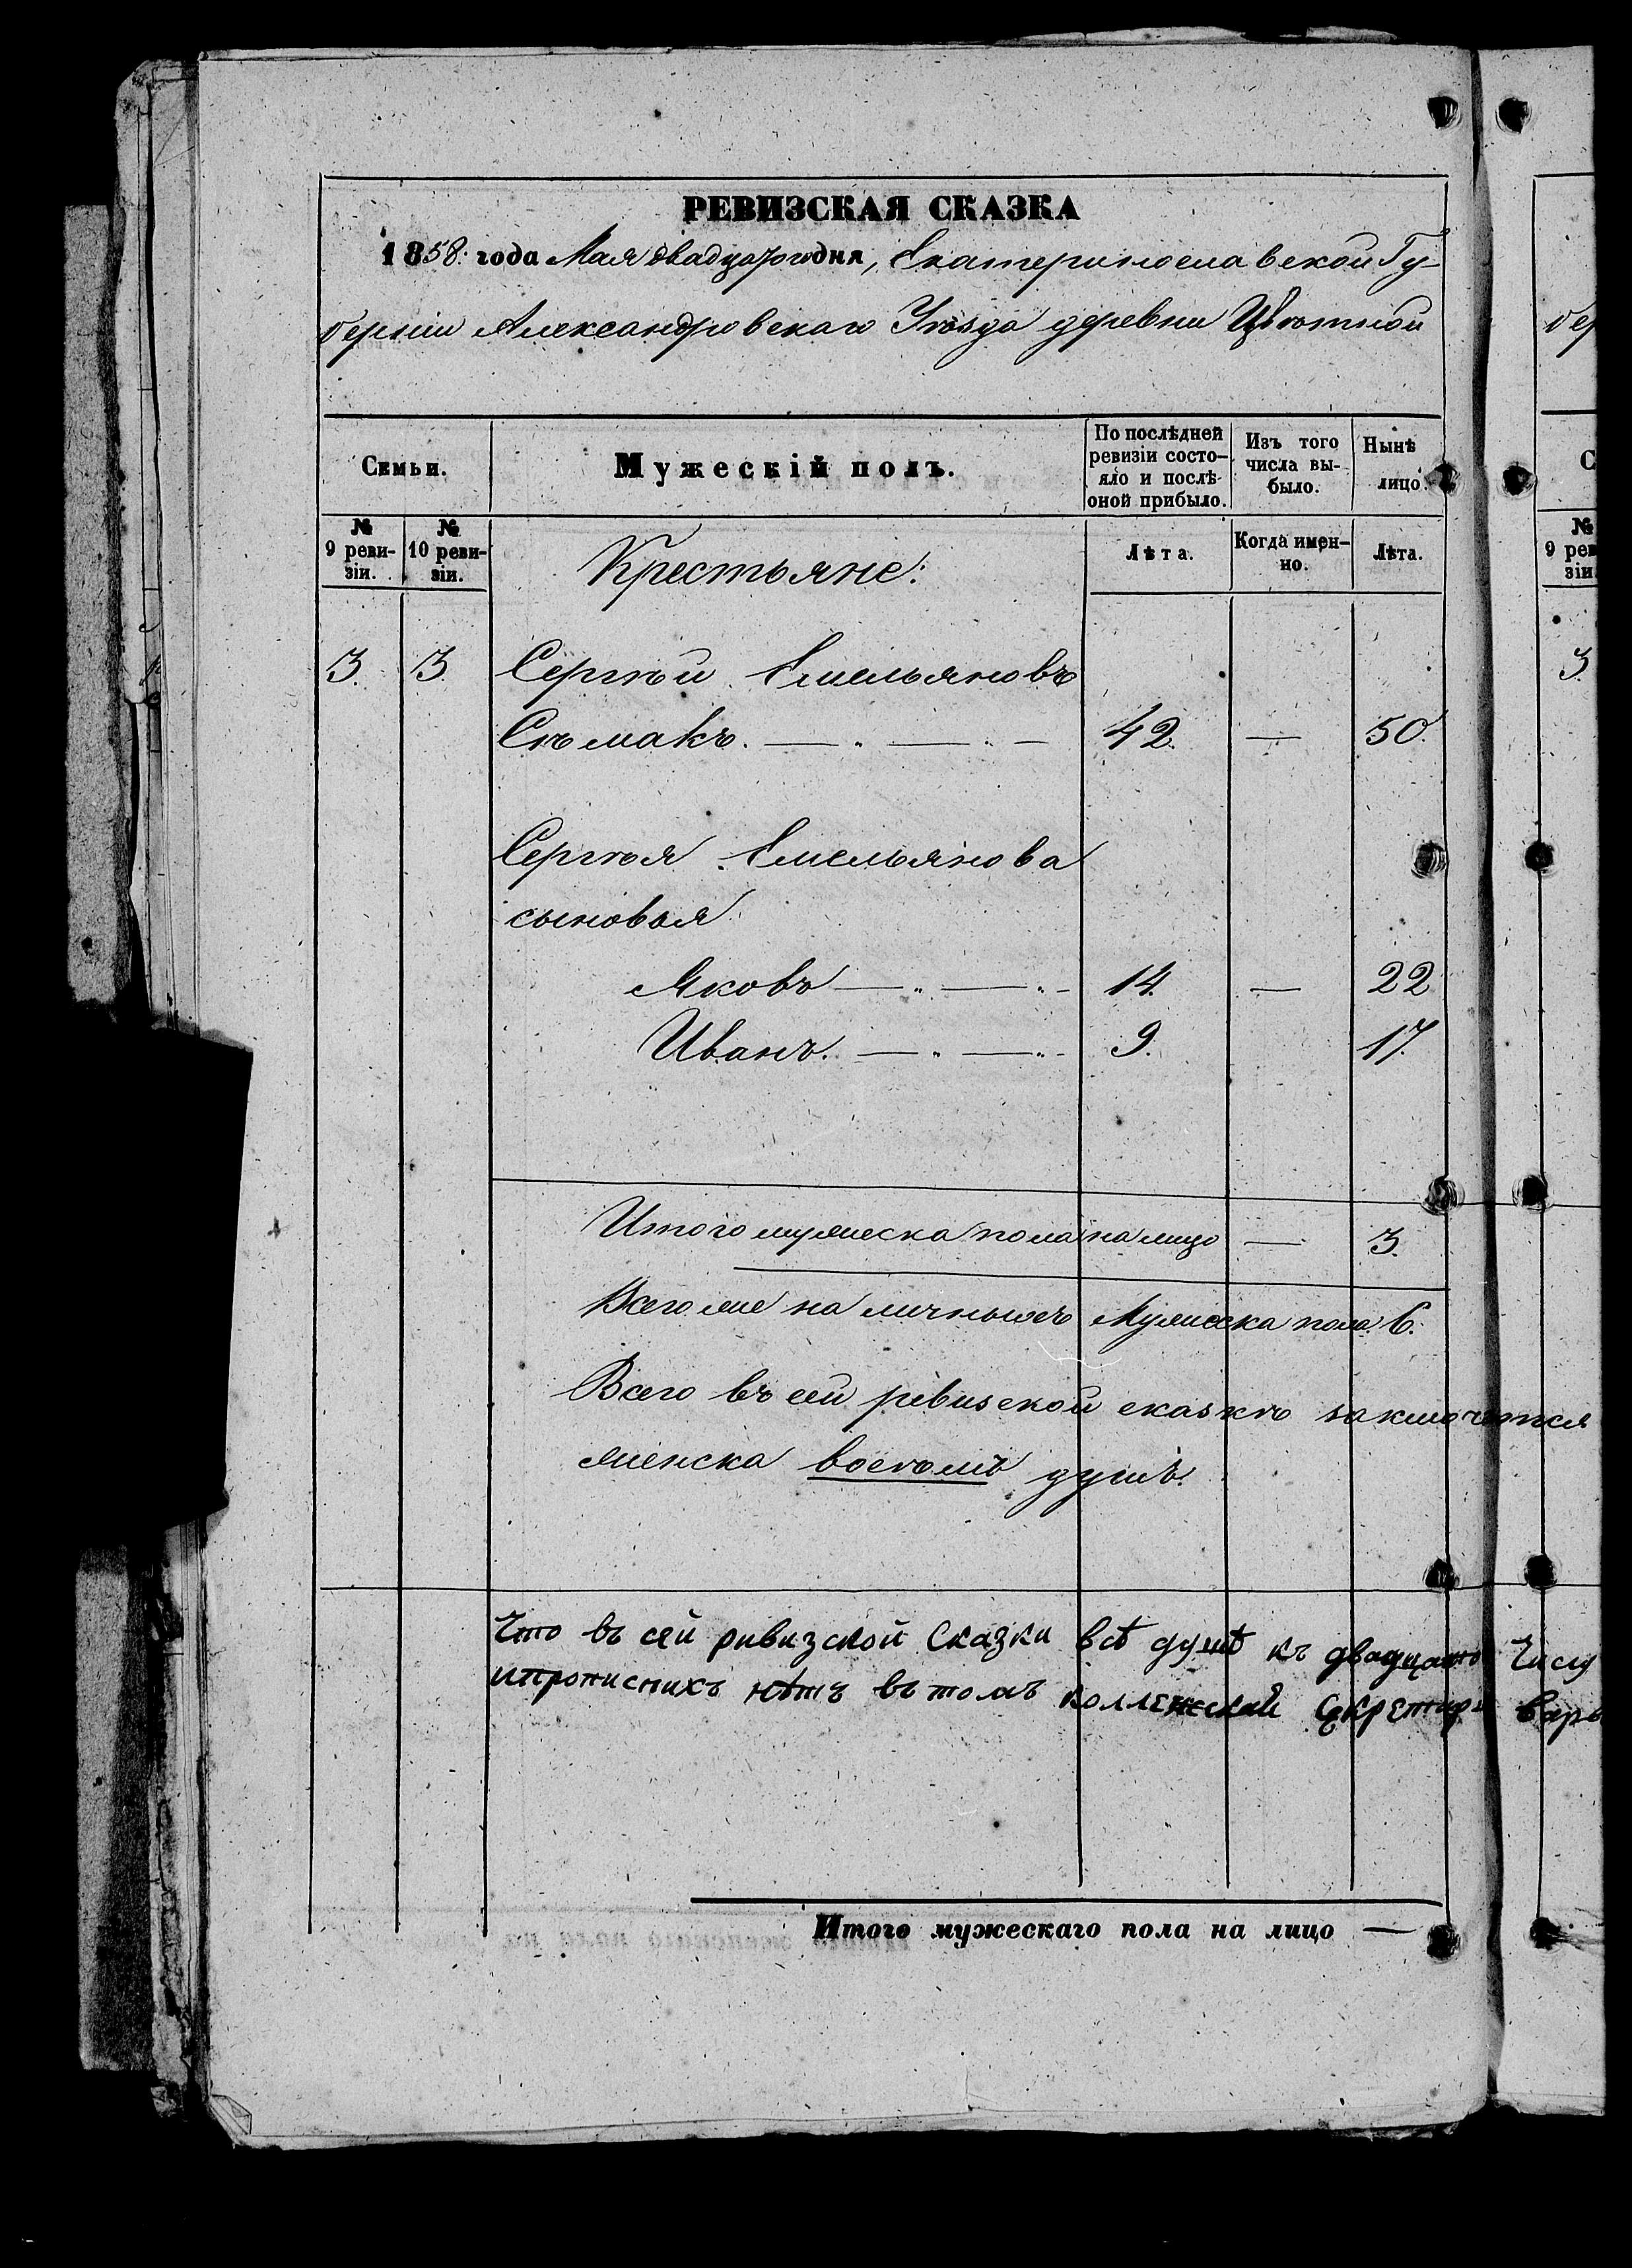 РЕВИЗСКАЯ СКАЗКА
1858. года Мая двадцатого дня, Екатеринославской Гу-
берніи Александровскаго Уѣзда деревни Цвѣтной
бер
Семьи.
Мужескій полъ.
По послѣдней ревизіи состо-
яло и послѣ оной прибыло.
Изъ того числа вы-
было.
Нынѣ лицо.
С
№ 9 реви-
зіи.
№ 10 реви-
зіи.
Крестьяне:
Лѣта.
Когда имен-
но.
Лѣта.
№ 9 рев
зіи
3. 3. Сергѣй Емельяновъ
3.
Сѣмакъ. — „ — „ — 42. — 50.
Сергѣя Емельянова
сыновья
Яковъ — „ — „ - 14. — 22
Иванъ. — „ — „ - 9. 17.
Итого мужеска пола на лицо — 3.
Всего же на личныхъ Мужеска пола 6.
Всего въ сей ревизской сказкѣ заключается
женска восемъ душъ.
Что въ сей ривизской Сказки всѣ душѣ къ двадцато Числу
ипрописнихъ нѣтъ въ томъ Коллежский Секретарь Варв
Итого мужескаго пола на лицо —